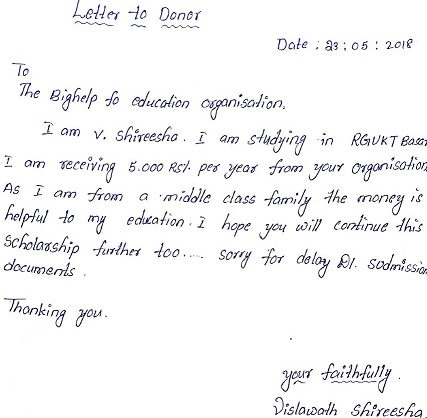 Letter to Donor
Date : 23 : 05 : 2018
To
The Bighelp fo education organisation.
I am V. Shireesha. I am studying in RGIUKT Basar
I am receiving 5.000 Rs/. per year from your organisation
As I am from a middle class family the money is
helpful to my education. I hope you will continue this
Scholarship further too.... sorry for delay submission
documents.
Thanking you.
your faithfully.
Vislawath Shireesha.